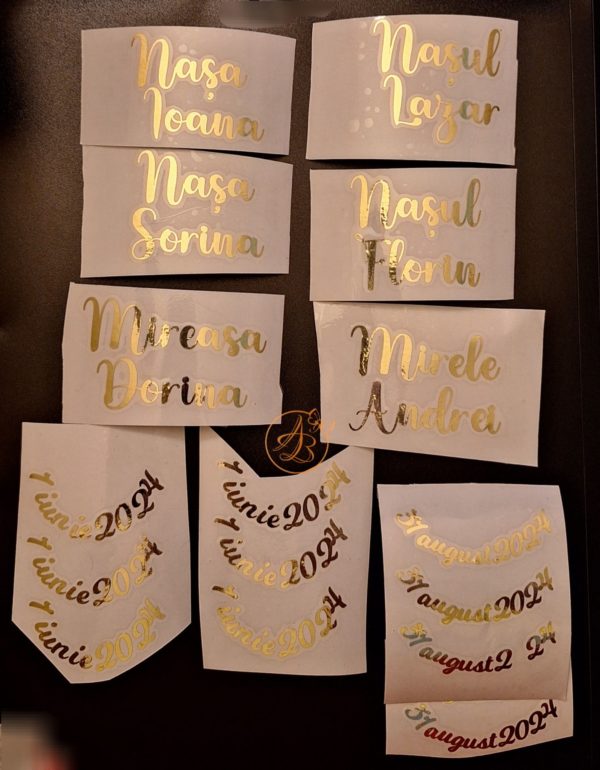 Nașa
Ioana
Nașul
Lazar
Nașa
Sorina
Nașul
Florin
Mireasa
Dorina
Mirele
Andrei
1 iunie2024
1 iunie2024
1 iunie2024
1 iunie2024
1 iunie2024
1 iunie2024
31august2024
31august2024
31august2 24
31august2024
AB